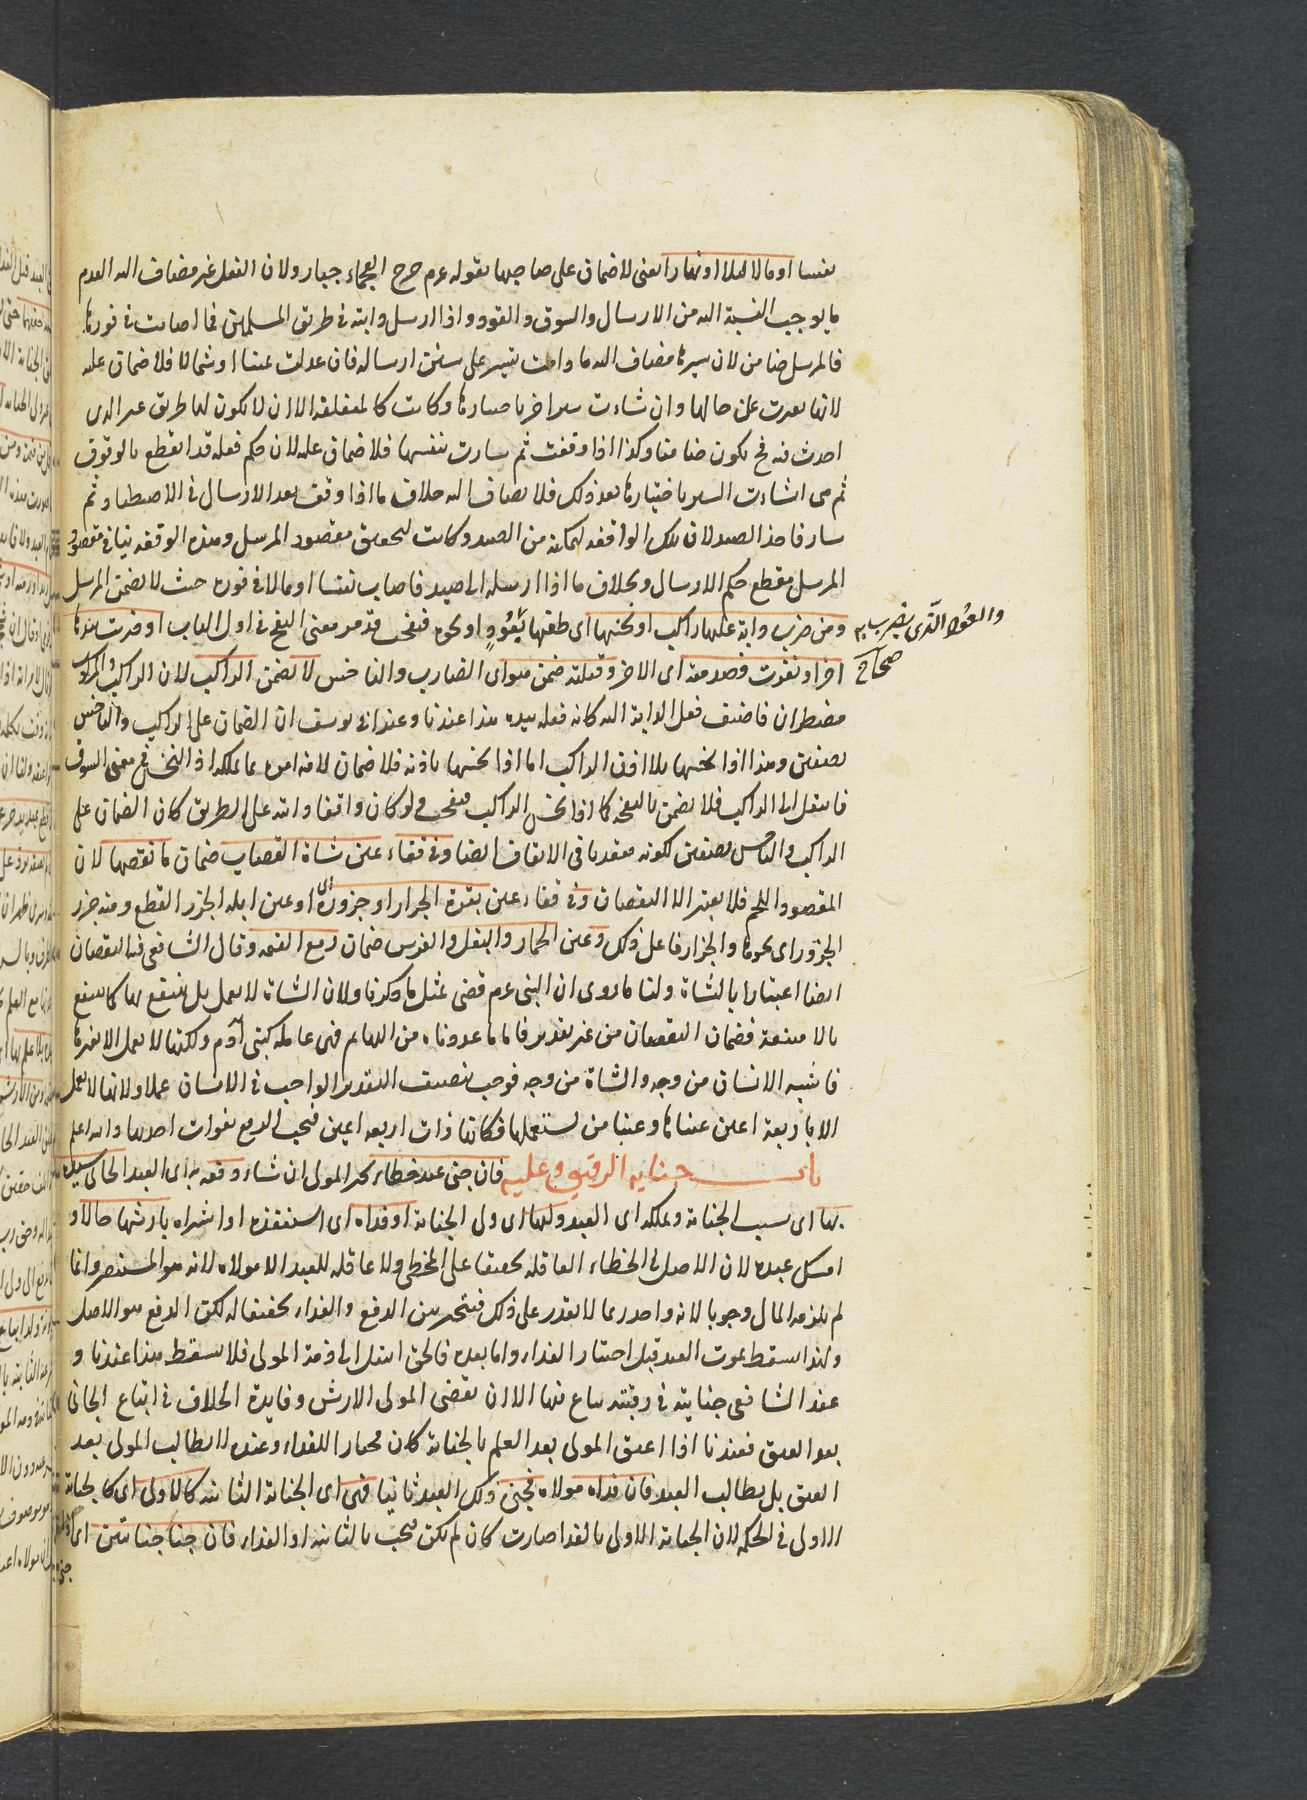 نفسا او مالا ليلا او نهارا يعنى لا ضمان على صاحبها بقوله عم جرح العجماء جبار ولان الفعل غير مضاف اليه لعدم
ما يوجب النسبة اليه من الارسال والسوق والقود واذا ارسل دابته فى طريق المسلمين فما اصابت فى فورها
فالمرسل ضامن لان سيرها مضاف اليه ما دامت تسير على سنن ارساله فان عدلت يمينا او شمالا فلا ضمان عليه
لانها تغيرت عن حالها وان شاءت سيرا اخر باختيارها وكانت كالمنفلتة الا ان لا يكون لها طريق غير الذى
احدث فيه فح يكون ضامنا وكذا اذا وقفت ثم سارت بنفسها فلا ضمان عليه لان حكم فعله قد انقطع بالوقوف
ثم هى انشاءت السير باختيارها بعد ذلك فلا يضاف اليه بخلاف ما اذا وقف بعد الارسال فى الاصطياد ثم
سار فاخذ الصيد لان تلك الوقفة لتمكنه من الصيد وكانت لتحقيق مقصود المرسل وهذه الوقفة تنافى مقصود
المرسل فينقطع حكم الارسال وبخلاف ما اذا ارسله الى صيد فاصاب نفسا او مالا فى فوره حيث لا يضمن المرسل
ومن ضرب دابة عليها راكب او نخسها اى طعنها بعود او نحوه فنفحت قد مر معنى النفح فى اول الباب او ضربت بيدها
اخر او نفرت فصدمته اى الاخر وقتلته ضمن هو اى الضارب والناخس لا يضمن الراكب لان الراكب والمركب
مضطران فاضيف فعل الدابة اليه كانه فعله بيده هذا عندنا وعند ابى يوسف ان الضمان على الراكب والناخس
نصفين وهذا اذا نخسها بلا اذن الراكب اما اذا نخسها باذنه فلا ضمان لانه امره بما يملكه اذ النخس فى معنى السوق
فانتقل الى الراكب فلا يضمن بالنفحة كما اذا نخس الراكب فنفحت ولو كان واقفا دابته على الطريق كان الضمان على
الراكب والناخس نصفين لكونه متعديا فى الايقاف ايضا وفى فقاء عين شاة القصاب ضمان ما نقصها لان
المقصود اللحم فلا يعتبر الا النقصان وفى فقاء عين بقرة الجزار او جزوره اى او عين ابله الجزر القطع ومنه جزر
الجزور اى نحرها والجزار فاعل ذلك وعين الحمار والبغل والفرس ضمان ربع القيمة وقال الشافعى فيه النقصان
ايضا اعتبارا بالشاة ولنا ما روى ان النبى عم قضى بمثل ما ذكرنا ولان الشاة لا يعمل بل ينتفع بها كما ينتفع
بالامتعة فضمان النقصان من غير تقدير فاما ما عدوناه من البهايم فهى عاملة كبنى آدم ولكنها لا يعمل الا بغيرها
فاشبه الانسان من وجه والشاة من وجه فوجب نصف التقدير الواجب فى الانسان عملا ولانها لا يعمل
الا باربعة اعين عيناها وعينا من يستعملها فكانها ذات اربعة اعين فيجب الربع بفوات احديها والله اعلم
باب جناية الرقيق وعليه فان جنى عبد خطاء خير المولى ان شاء دفعه به اى العبد الجانى بسبيله
بها اى بسبب الجناية ويملكه اى العبد وليها اى ولى الجناية او فداه اى استنقذه او اشتراه بارشها حالا و
امسك عبده لان الاصل فى الخطاء العاقلة تخفيفا على المخطى ولا عاقلة للعبد الا مولاه لانه هو المستنصر وانما
لم يلزمه المال وجوبا لانه واحد ربما لا يقدر على ذلك فيتخير بين الدفع والفداء تخفيفا له لكن الدفع هو الاصل
ولهذا يسقط بموت العبد قبل اختيار الفداء واما بعده فالحق انتقل الى ذمة المولى فلا يسقط هذا عندنا و
عند الشافعى جنايته فى رقبته يباع فيها الا ان يقضى المولى الارش وفايدة الخلاف فى اتباع الجانى
بعد العتق فعندنا اذا اعتق المولى بعد العلم بالجناية كان مختارا للفداء وعنده لا يطالب المولى بعد
العتق بل يطالب العبد فان فداه مولاه فجنى ذلك العبد ثانيا فهى اى الجناية الثانية كالاولى اى كالجناية
الاولى فى الحكم لان الجناية الاولى بالفدا صارت كان لم يكن فيجب بالثانية او الفداء فان جنا جنايتين اى
والعود الذى يضرب به
صحاح